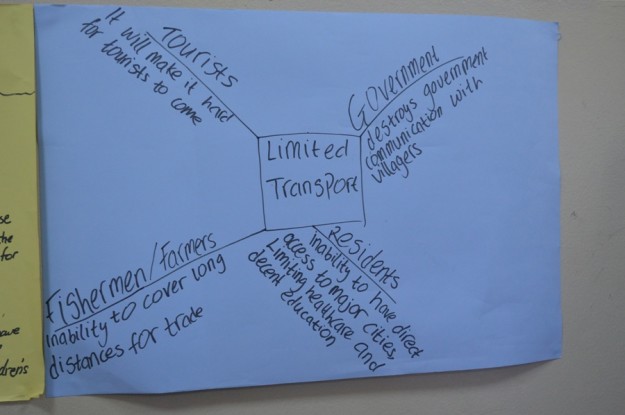 Tourists
It will make it hard
for tourists to come
Government
destroys government
communication with
villagers
Limited
Transport
Fishermen/Farmers
inability to cover long
distances for trade
Residents
inability to have direct
access to major cities,
Limiting healthcare and
decent education
se
the
for
dren's